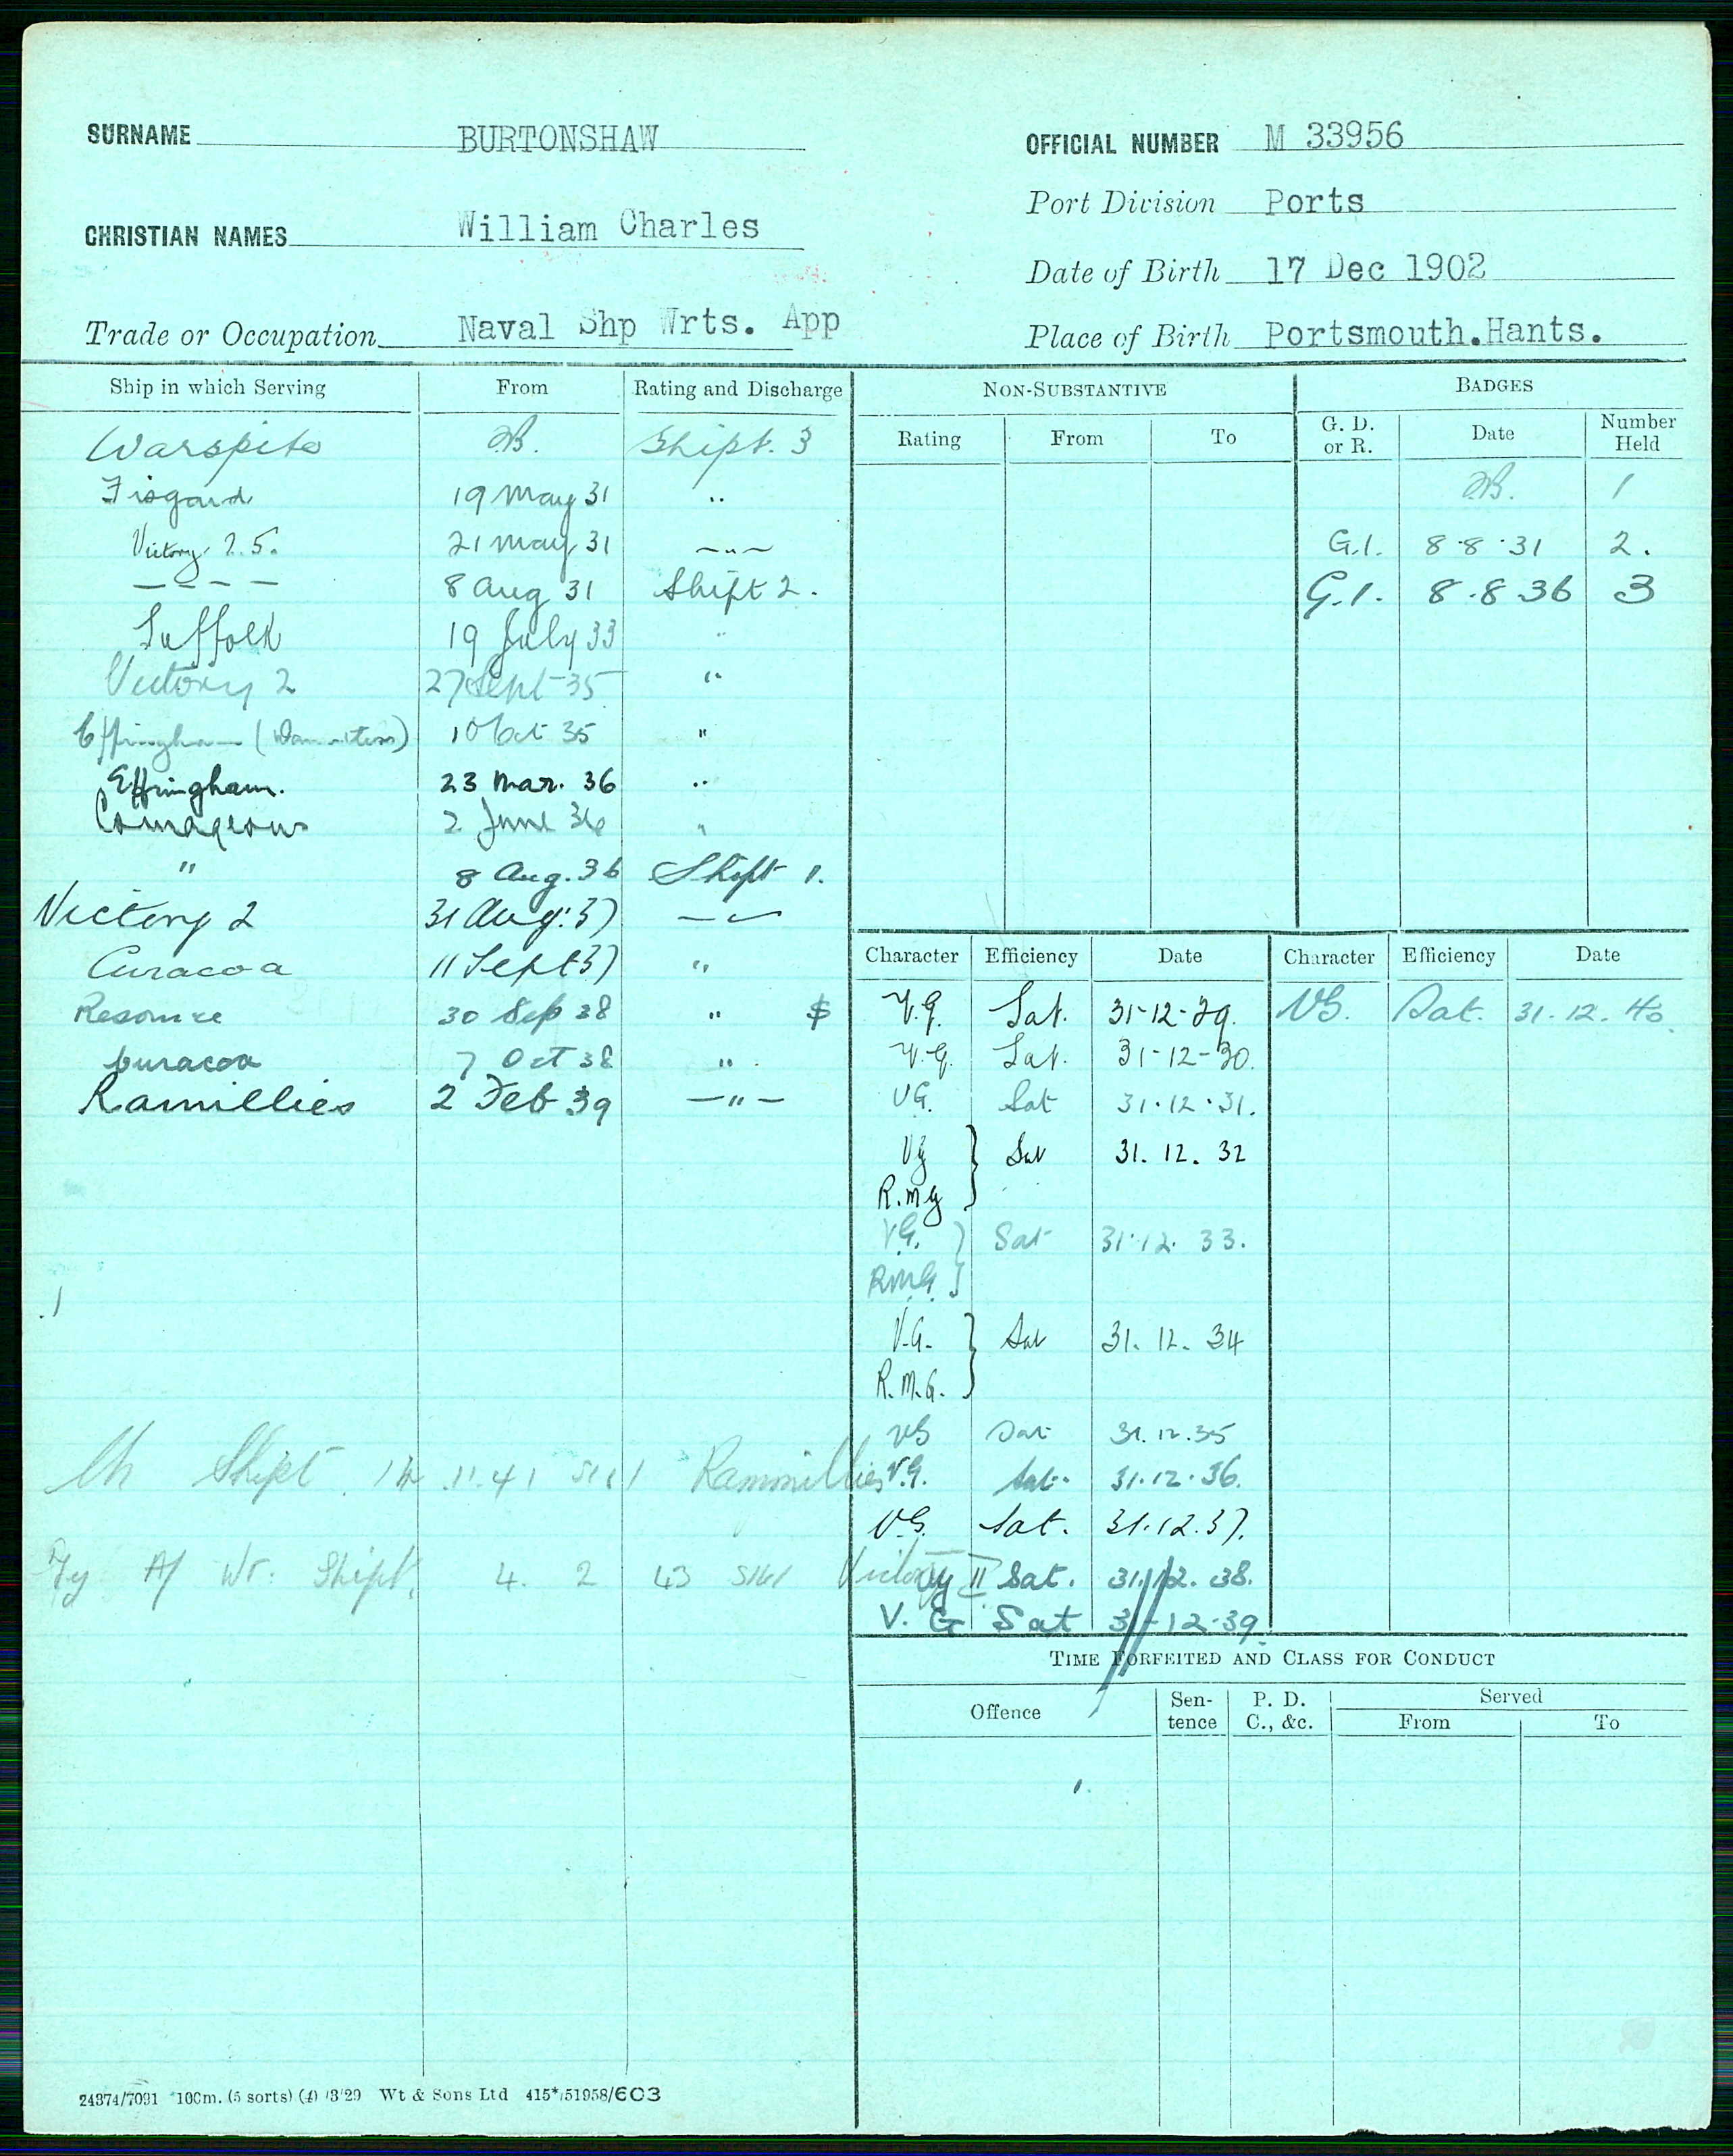 SURNAME BURTONSHAW
OFFICIAL NUMBER M 33956
Port Division Ports
CHRISTIAN NAMES William Charles
Date of Birth 17 Dec 1902
Trade or Occupation Naval Shp Wrts. App
Place of Birth Portsmouth.Hants.
Ship in which Serving From Rating and Discharge
Warspite Shipt. 3
Fisgard 19 May 31 "
Victory 2.5. 21 May 31 — " —
— — — — 8 Aug 31 Shipt 2.
Suffolk 19 July 33 "
Victory 2 27 Sept 35 "
Effingham 1 Oct 35 "
Effingham. 23 Mar. 36 "
Courageous 2 June 36 "
" 8 Aug. 36 Shipt 1.
Victory 2 31 Aug. 37 — " —
Curacoa 11 Sept 37 "
Resource 30 Sep 38 " $
Curacoa 7 Oct 38 "
Ramillies 2 Feb 39 — " —
Ch Shipt. 11.41 Rammillies
A/ Wt. Shipt. 4. 2 43 Victory II
NON-SUBSTANTIVE
Rating From To
BADGES
G. D. or R. Date Number Held
1
G.1. 8.8.31 2.
G.1. 8.8.36 3
Character Efficiency Date Character Efficiency Date
V.G. Sat. 31-12-29. VG. Sat. 31.12.40.
V.G. Sat. 31-12-30.
VG. Sat 31.12.31.
VG } Sat 31. 12. 32
R.M.G
V.G. } Sat 31.12. 33.
R.M.G.
V.G. } Sat 31. 12. 34
R.M.G.
VG Sat 31.12.35
V.G. Sat. 31.12.36.
VG. Sat. 31.12.37.
Sat. 31.12.38.
V. G Sat 31-12-39.
TIME FORFEITED AND CLASS FOR CONDUCT
Offence Sentence P. D. C., &c. Served From To
24374/7091 100m. (5 sorts) (4) /3/29 Wt & Sons Ltd 415*/51958/603